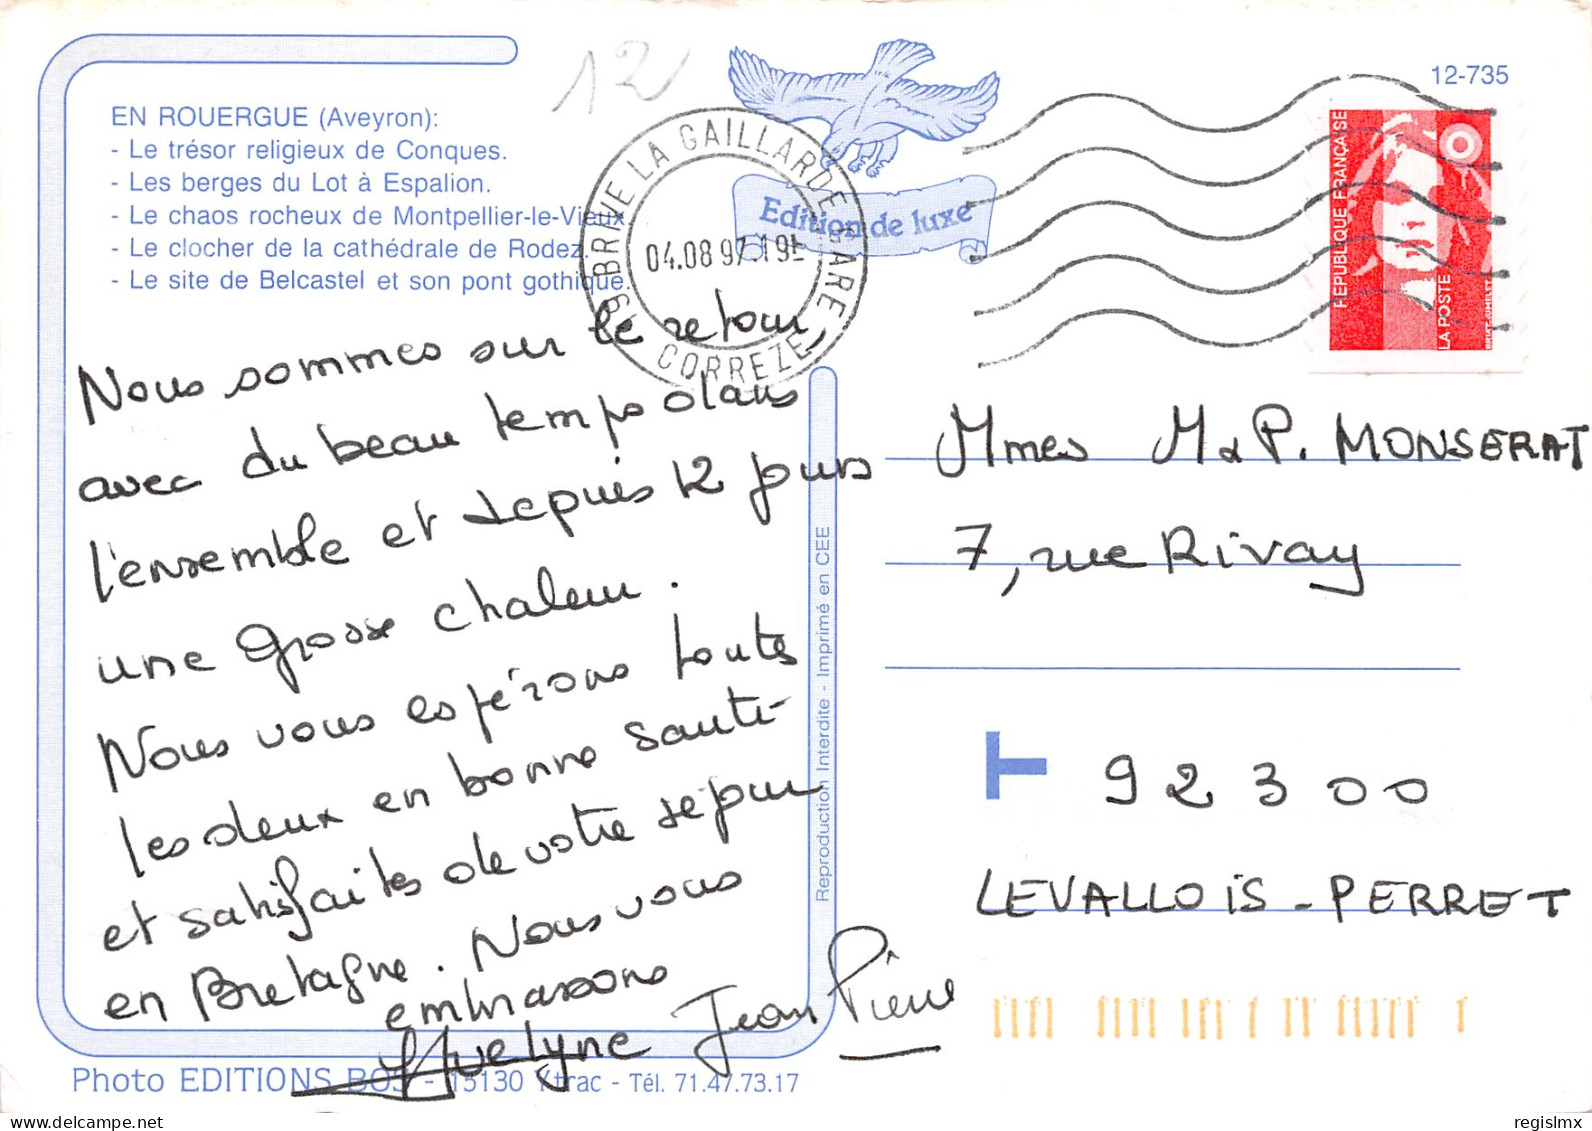 12
12-735
EN ROUERGUE (Aveyron):
- Le trésor religieux de Conques.
- Les berges du Lot à Espalion.
- Le chaos rocheux de Montpellier-le-Vieux.
- Le clocher de la cathédrale de Rodez.
- Le site de Belcastel et son pont gothique.
Edition de luxe
19 BRIVE LA GAILLARDE GARE
04.08 97 19H
CORREZE
REPUBLIQUE FRANÇAISE
LA POSTE
Nous sommes sur le retour
avec du beau temps dans
l'ensemble et depuis 12 jours
une grosse chaleur.
Nous vous espérons toutes
les deux en bonne santé
et satisfaites de votre séjour
en Bretagne. Nous vous
embrassons
Evelyne Jean Pierre
Mmes M & P. MONSERAT
7, rue Rivay
T
92300
LEVALLOIS-PERRET
Reproduction Interdite - Imprimé en CEE
Photo EDITIONS BOS - 15130 Ytrac - Tél. 71.47.73.17
regislmx